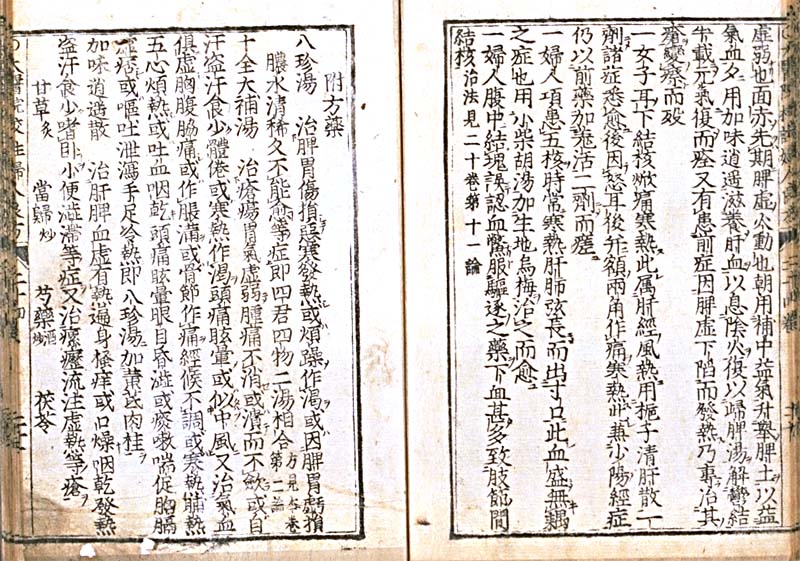 虛弱也面赤先期脾虛火動也朝用補中益氣升舉脾土以益
氣血夕用加味逍遥滋養肝血以息陰火復以歸脾湯解鬱結
半載元氣復而痊又有患前症因脾虛下陷而發熱乃專治其
瘡變瘵而歿
一女子耳下結核焮痛寒熱此属肝經風熱用梔子清肝散一
劑諸症悉愈後因怒耳後并額兩角作痛寒熱此兼少陽經症
仍以前藥加羗活二劑而瘥
一婦人項患五核時常寒熱肝肺弦長而出寸口此血盛無耦
之症也用小柴胡湯加生地烏梅治之而愈
一婦人腹中結塊誤認血鱉服驅逐之藥下血甚多致肢節間
結核治法見二十卷第十一論
附方藥
八珍湯 治脾胃傷損惡寒發熱或煩躁作渴或因脾胃虧損
膿水清稀久不能愈等症即四君四物二湯相合方見各卷第二論
十全大補湯 治瘡瘍胃氣虛弱腫痛不消或潰而不斂或自
汗盗汗食少體倦或寒熱作渴頭痛眩暈或似中風又治氣血
俱虛胸腹脇痛或作脹滿或骨節作痛經候不調或寒熱晡熱
五心煩熱或吐血咽乾頭痛眩暈眼目昏澁或痰嗽喘促胸膈
或嘔吐泄瀉手足冷熱即八珍湯加黄芪肉桂
加味逍遥散 治肝脾血虛有熱遍身搔痒或口燥咽乾發熱
盗汗食少嗜卧小便澁滯等症又治瘰癧流注虛熱等瘡
甘草炙 當歸炒 芍藥酒炒 茯苓